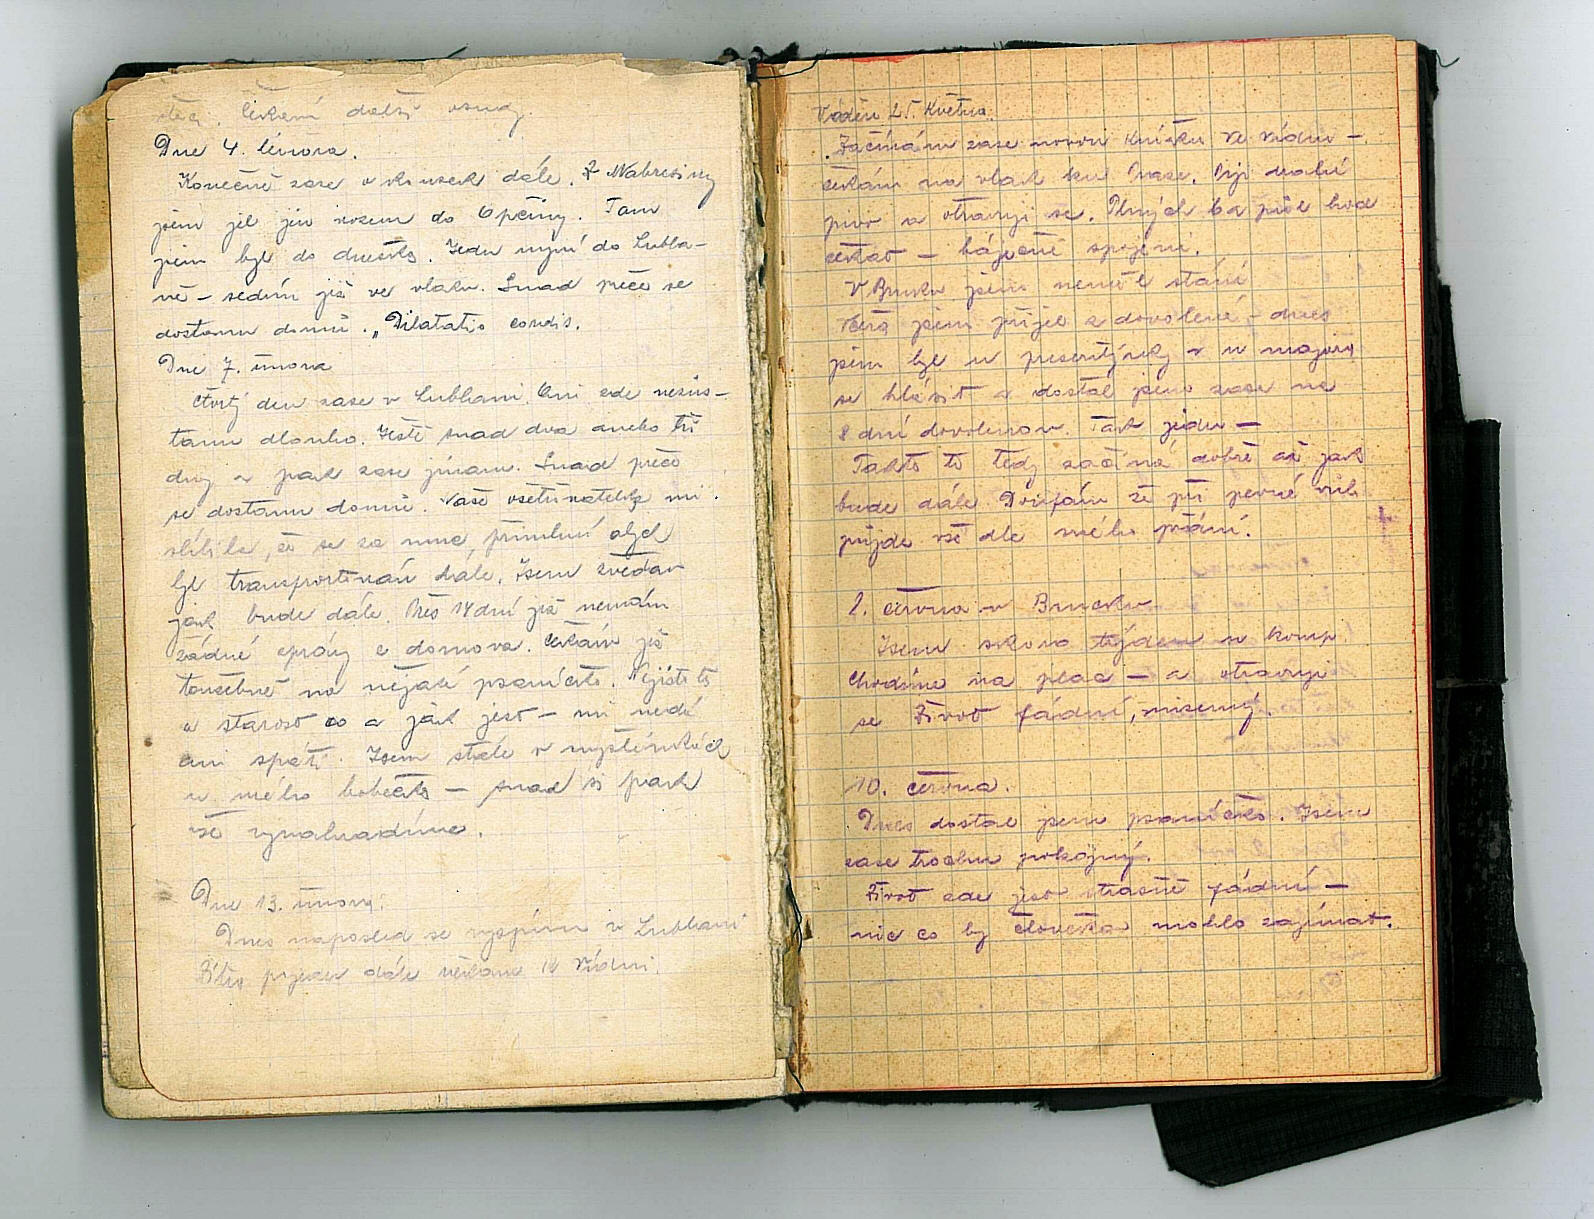 čekání další osudy.
Dne 4. února.
Konečně zase o kousek dále. Z Nabresiny
jsem jel jen vozem do Opčiny. Tam
jsem byl do dneška. Jedu nyní do Lubla-
ně – sedím již ve vlaku. Snad přece se
dostanu domů. „Dilatatio cordis.
Dne 7. února
čtvrtý den zase v Lublani. Ani zde nezůs-
tanu dlouho. Ještě snad dva anebo tři
dny a pak zase jinam. Snad přece
se dostanu domů. Naše ošetřovatelka mi
slíbila, že se za mne přimluví abych
byl transportován dále. Jsem zvědav
jak bude dále. Přes 14 dní již nemám
žádné zprávy z domova. Čekám již
toužebně na nějaké psaníčko. Nejistota
a starost co a jak jest – mi nedá
ani spáti. Jsem stále v myšlénkách
u mého bobečka – snad si pak
vše vynahradíme.
Dne 13. února:
Dnes naposled se vyspím v Lublani
Zítra pojedu dále večer k Vídni.
Vídeň 25. Května.
Začínám zase novou knížku ve Vídni –
čekám na vlak ku Praze. Piji malé
pivo a otravuji se. Plných 6 a půl hod
čekat – báječné spojení.
V Brucku jsem neměl stání
Včera jsem přijel z dovolené – dnes
jsem byl u presentýrky a u majora
se hlásit a dostal jsem zase na
8 dní dovolenou. Tak jedu –
Takto to tedy začíná dobře až jak
bude dále. Doufám že při pevné vůli
přijde vše dle mého přání.
2. června v Brucku
Jsem skoro týden u komp.
Chodíme na plac – a otravuji
se Život fádní, mizerný.
10. června.
Dnes dostal jsem psaníčko. Jsem
zase trochu pokojný.
Život zde jest strašně fádní –
nic co by člověka mohlo zajímat.